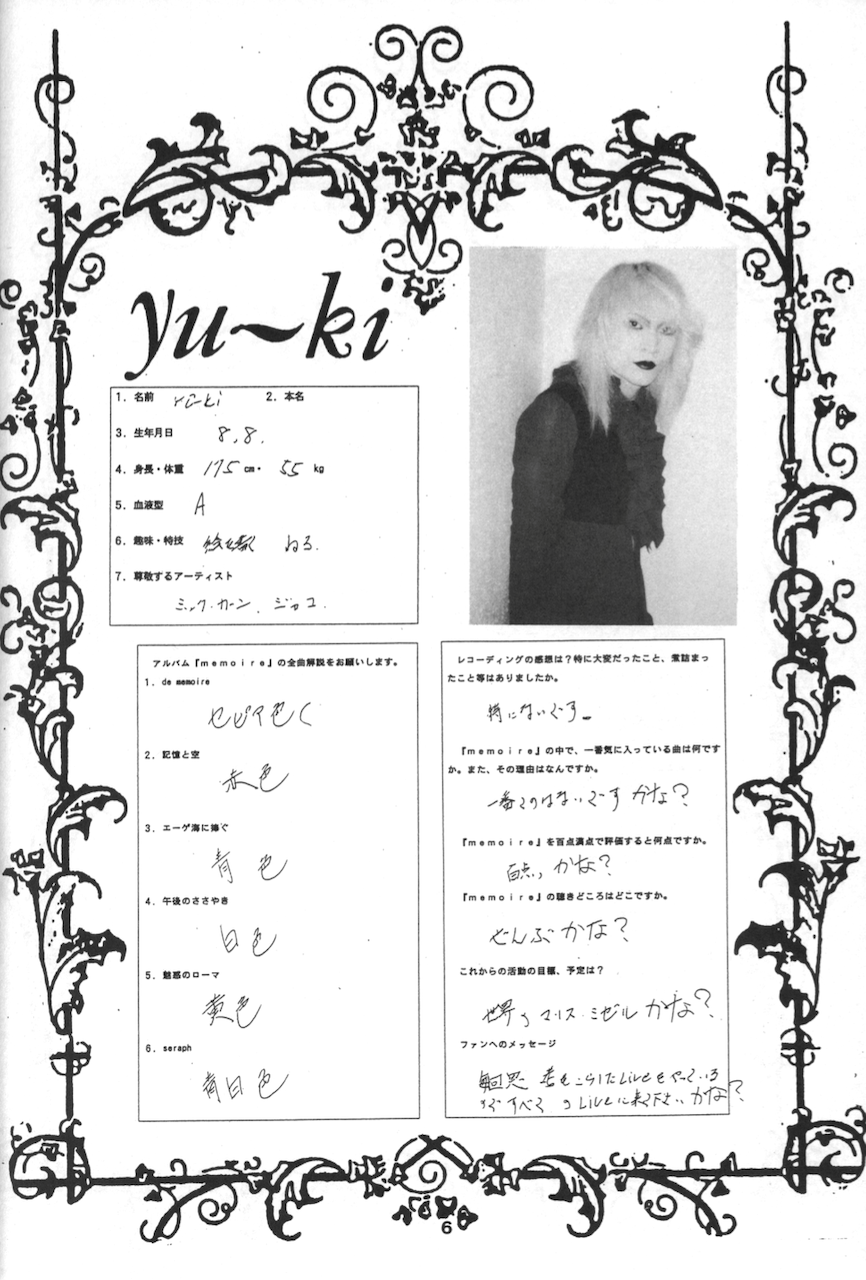 yu~ki
1. 名前 Yu-ki 2. 本名
3. 生年月日 8.8.
4. 身長・体重 175 cm・ 55 kg
5. 血液型 A
6. 趣味・特技 ねる.
7. 尊敬するアーティスト
ミック・カーン. ジャコ.
アルバム『memoire』の全曲解説をお願いします。
1. de memoire
セピア色く
2. 記憶と空
赤色
3. エーゲ海に捧ぐ
青色
4. 午後のささやき
白色
5. 魅惑のローマ
黄色
6. seraph
青白色
レコーディングの感想は?特に大変だったこと、煮詰まっ
たこと等はありましたか。
特にないです。
『memoire』の中で、一番気に入っている曲は何です
か。また、その理由はなんですか。
一番てのはないですかな?
『memoire』を百点満点で評価すると何点ですか。
百点、かな?
『memoire』の聴きどころはどこですか。
ぜんぶかな?
これからの活動の目標、予定は?
世界のマリス・ミゼルかな?
ファンへのメッセージ
毎回 こらしたLiveをやっている
のですべてのLiveに来て下さいかな?
6